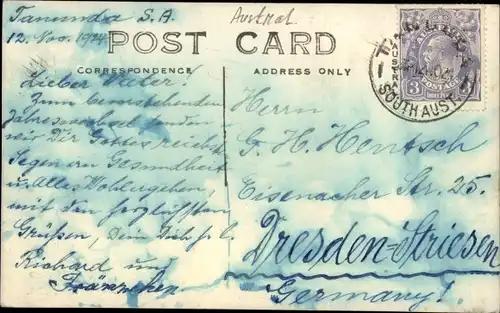 Tanunda S.A.
12. Nov. 1924
Austral
POST CARD
CORRESPONDENCE
ADDRESS ONLY
Lieber Vater!
Zum bevorstehenden
Jahreswechsel senden
wir Dir Gottes reichst
Segen an Gesundheit
u. Alles Wohlergehen,
mit den herzlichsten
Grüßen, Dein Dich s. l.
Richard und
Fränzchen
Herrn
G. H. Hentsch
Eisenacher Str. 25.
Dresden-Striesen
Germany!
AUSTRALIA
3 POSTAGE 3
SOUTH AUST